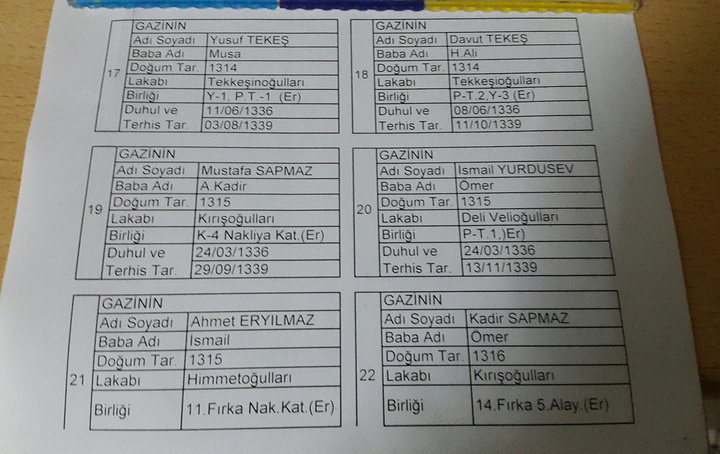 17
GAZİNİN
Adı Soyadı Yusuf TEKEŞ
Baba Adı Musa
Doğum Tar. 1314
Lakabı Tekkeşinoğulları
Birliği Y-1, P.T.-1 (Er)
Duhul ve 11/06/1336
Terhis Tar. 03/08/1339
18
GAZİNİN
Adı Soyadı Davut TEKEŞ
Baba Adı H.Ali
Doğum Tar. 1314
Lakabı Tekkeşioğulları
Birliği P-T.2,Y-3 (Er)
Duhul ve 08/06/1336
Terhis Tar. 11/10/1339
19
GAZİNİN
Adı Soyadı Mustafa SAPMAZ
Baba Adı A.Kadir
Doğum Tar. 1315
Lakabı Kırışoğulları
Birliği K-4 Nakliya Kat.(Er)
Duhul ve 24/03/1336
Terhis Tar. 29/09/1339
20
GAZİNİN
Adı Soyadı İsmail YURDUSEV
Baba Adı Ömer
Doğum Tar. 1315
Lakabı Deli Velioğulları
Birliği P-T.1,)Er)
Duhul ve 24/03/1336
Terhis Tar. 13/11/1339
21
GAZİNİN
Adı Soyadı Ahmet ERYILMAZ
Baba Adı İsmail
Doğum Tar. 1315
Lakabı Himmetoğulları
Birliği 11.Fırka Nak.Kat.(Er)
22
GAZİNİN
Adı Soyadı Kadir SAPMAZ
Baba Adı Ömer
Doğum Tar. 1316
Lakabı Kırışoğulları
Birliği 14.Fırka 5.Alay.(Er)